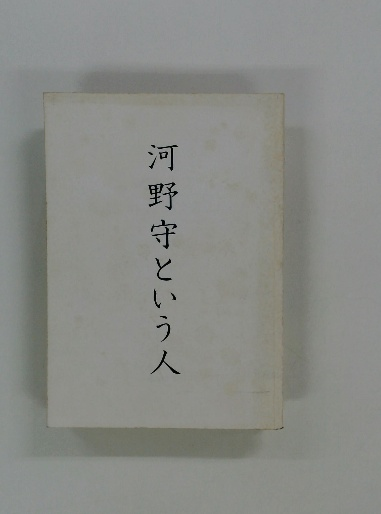 河野守という人